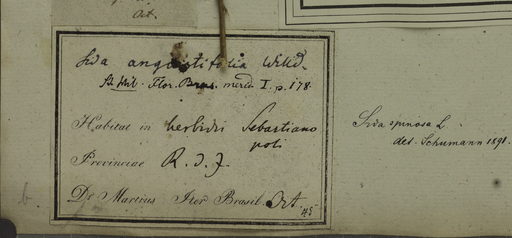 Oct.
Sida angustifolia Willd.
St Hil. Flor. Bras. merid I. p. 178
Habitat in herbidis Sebastiano
poli
Provinciae R. d. J.
Dr Martius Iter Brasil. Oct.
Sida spinosa L.
det. Schumann 1891.